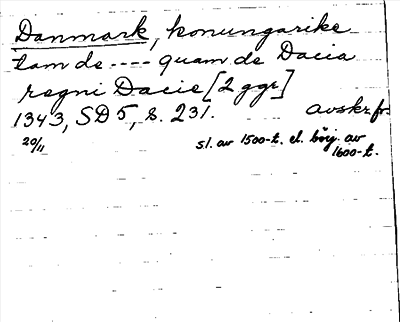 Danmark, konungarike
tam de ---- quam de Dacia
regni Dacie [2 ggr]
1343, SD 5, s. 231. avskr. fr.
20/11 s.l. av 1500-t. el. börj. av
1600-t.